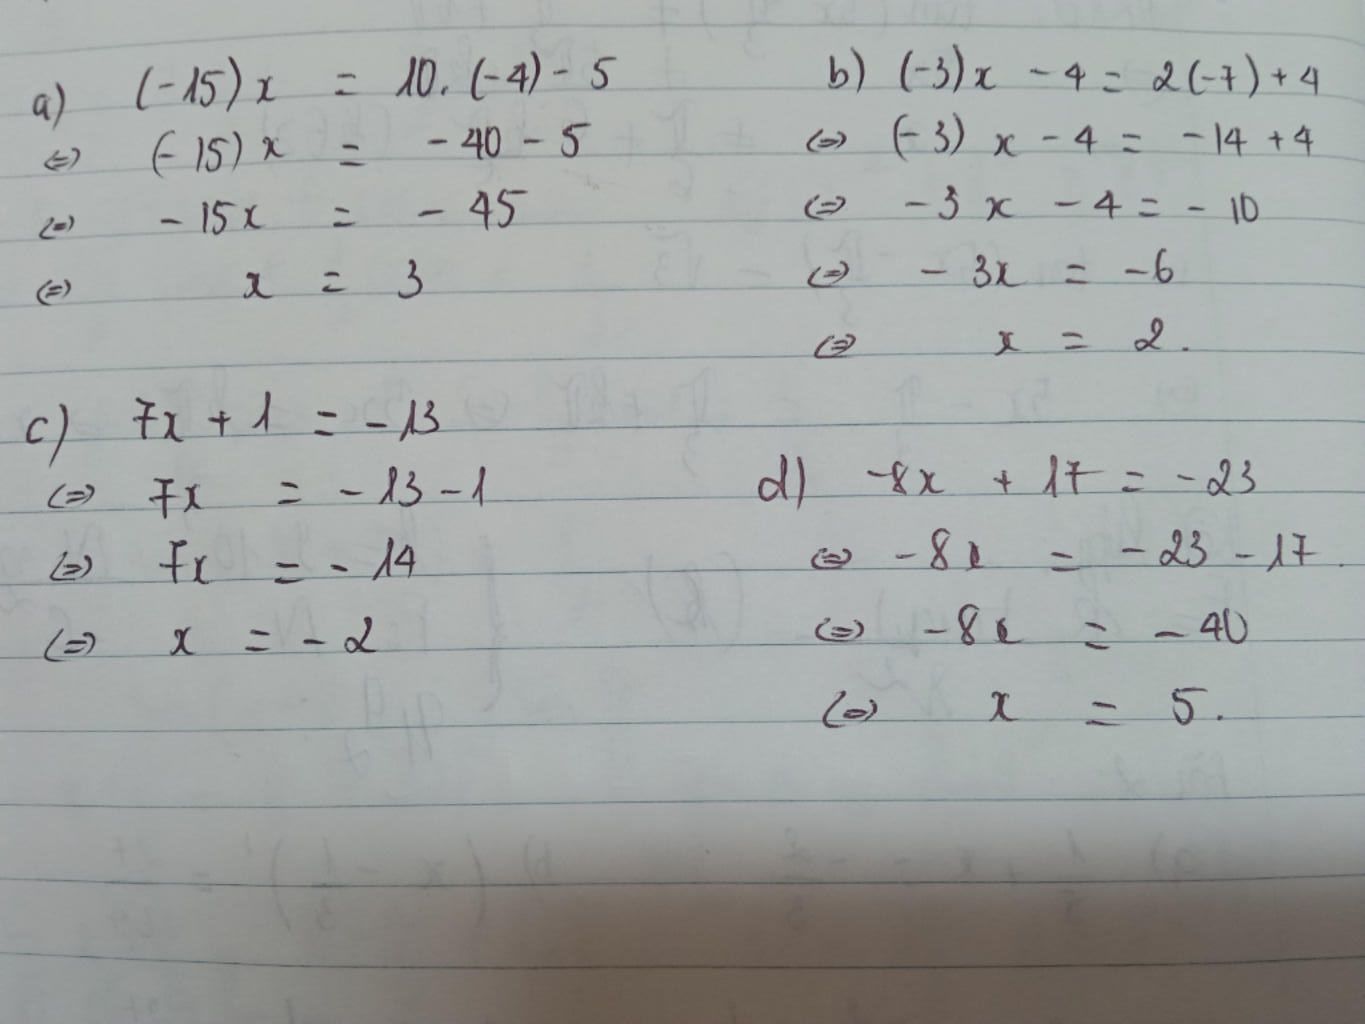 a) (-15)x = 10.(-4) - 5
⇔ (-15)x = -40 - 5
⇔ -15x = -45
⇔ x = 3
b) (-3)x - 4 = 2(-7) + 4
⇔ (-3)x - 4 = -14 + 4
⇔ -3x - 4 = -10
⇔ -3x = -6
⇔ x = 2.
c) 7x + 1 = -13
⇔ 7x = -13 - 1
⇔ 7x = -14
⇔ x = -2
d) -8x + 17 = -23
⇔ -8x = -23 - 17.
⇔ -8x = -40
⇔ x = 5.